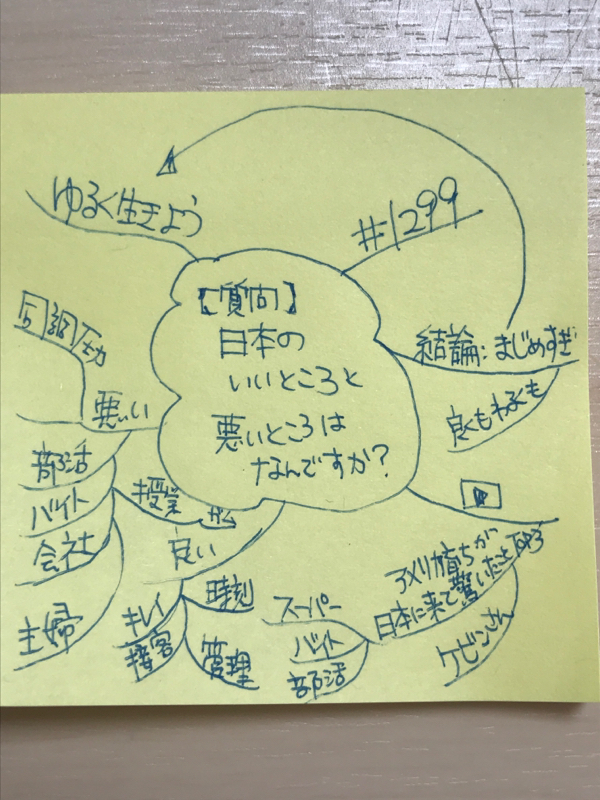 ゆるく生きよう
#1299
【質問】
日本の
いいところと
悪いところは
なんですか?
結論:まじめすぎ
良くもわるくも
同調圧力
悪い
部活
バイト
会社
主婦
授業
良い
時刻
管理
キレイ
接客
アメリカ育ちが
日本に来て驚いたこと
ケビンさん
スーパー
バイト
部活